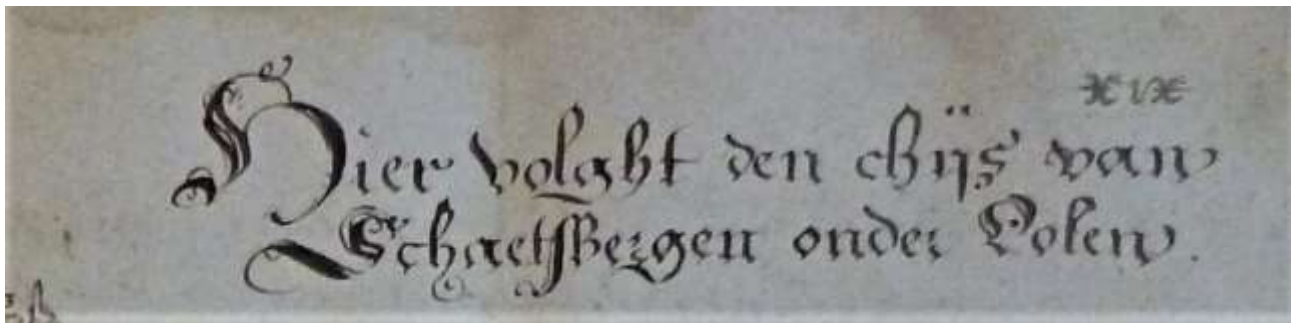 Hier volght den chijs van
Schaetsbergen onder Polen.